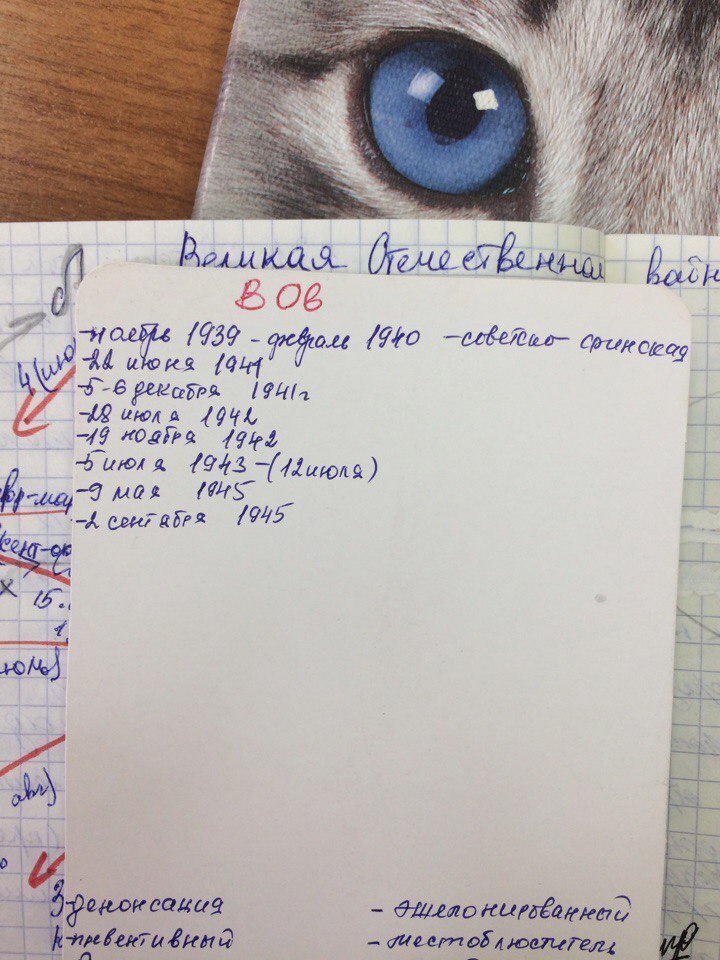 Великая Отечественная войн
ВОВ
-ноябрь 1939 - февраль 1940 -советско-финская
-22 июня 1941
-5-6 декабря 1941г
-28 июля 1942
-19 ноября 1942
-5 июля 1943 -(12 июля)
-9 мая 1945
-2 сентября 1945
15.
авг)
-денонсация - эшелонированный
-превентивный - местоблюститель